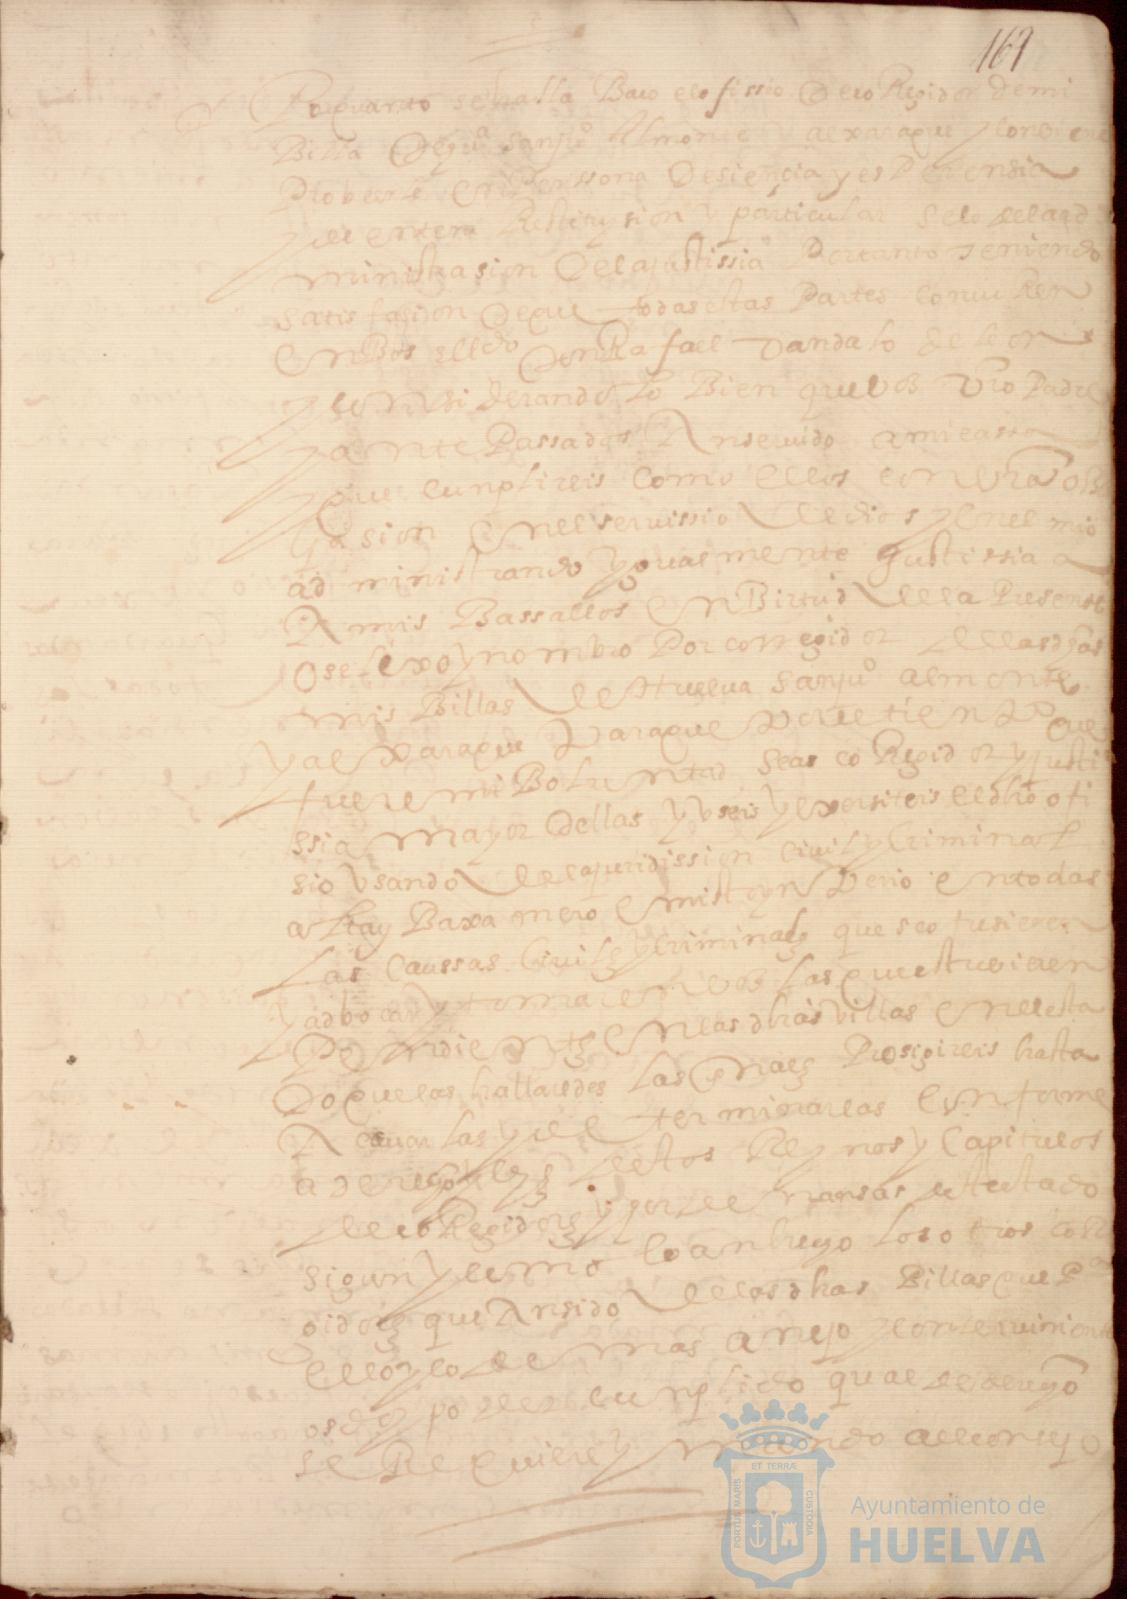 169
Por quanto se halla Baco el offissio De co Regidor de mi
Billa De gua sanjuº Almonte y alxaraque y conviene
Probeerle en Perssona De siençia y esperensia
y de entera Restituysion y particular selo de la ad
ministrasion De la justissia Por tanto teniendo
satisfasion De que todas estas Partes concurren
en Bos el lldo Don Rafael Vandalo de leon
y considerando lo Bien que vos vro Padre
y antepassados An servido a mi cassa
y que cunplireis como ellos con vra obli
gasion en el servissio de dios y en el mio
administrando ygualmente justissia a
A mis Bassallos en Birtud de la Presente
os elixo y nombro Por corregidor de las dhas
mis Billas de Huelva sanjuº almonte
y alxaraque Para que Por el tienpo que
fuere mi Boluntad seais co Regidor y justi
ssia mayor dellas y useis y exersiteis el dho ofi
sio usando de la juridission civil y criminal
alta y Baxa mero e misto ynperio en todas
las caussas civiles y criminales que se ofresieren
y adbocar y tomar en vos las que estuvieren
Pendientes en las dhas villas en el esta
do que las hallaredes las quales Prosigireis hasta
Acavarlas y de terminarlas conforme
a derecho leyes destos Reynos y Capitulos
de co Regidores y hordenansas deste estado
sigun y como lo an hecho los otros corre
gidores que An sido de las dhas Billas que Pª
ello y lo demas anejo y consernient
os doy poder cunplido qual de derecho
se Requiere y mando al consejo
PORTUS MARIS
ET TERRÆ
CUSTODIA
Ayuntamiento de
HUELVA